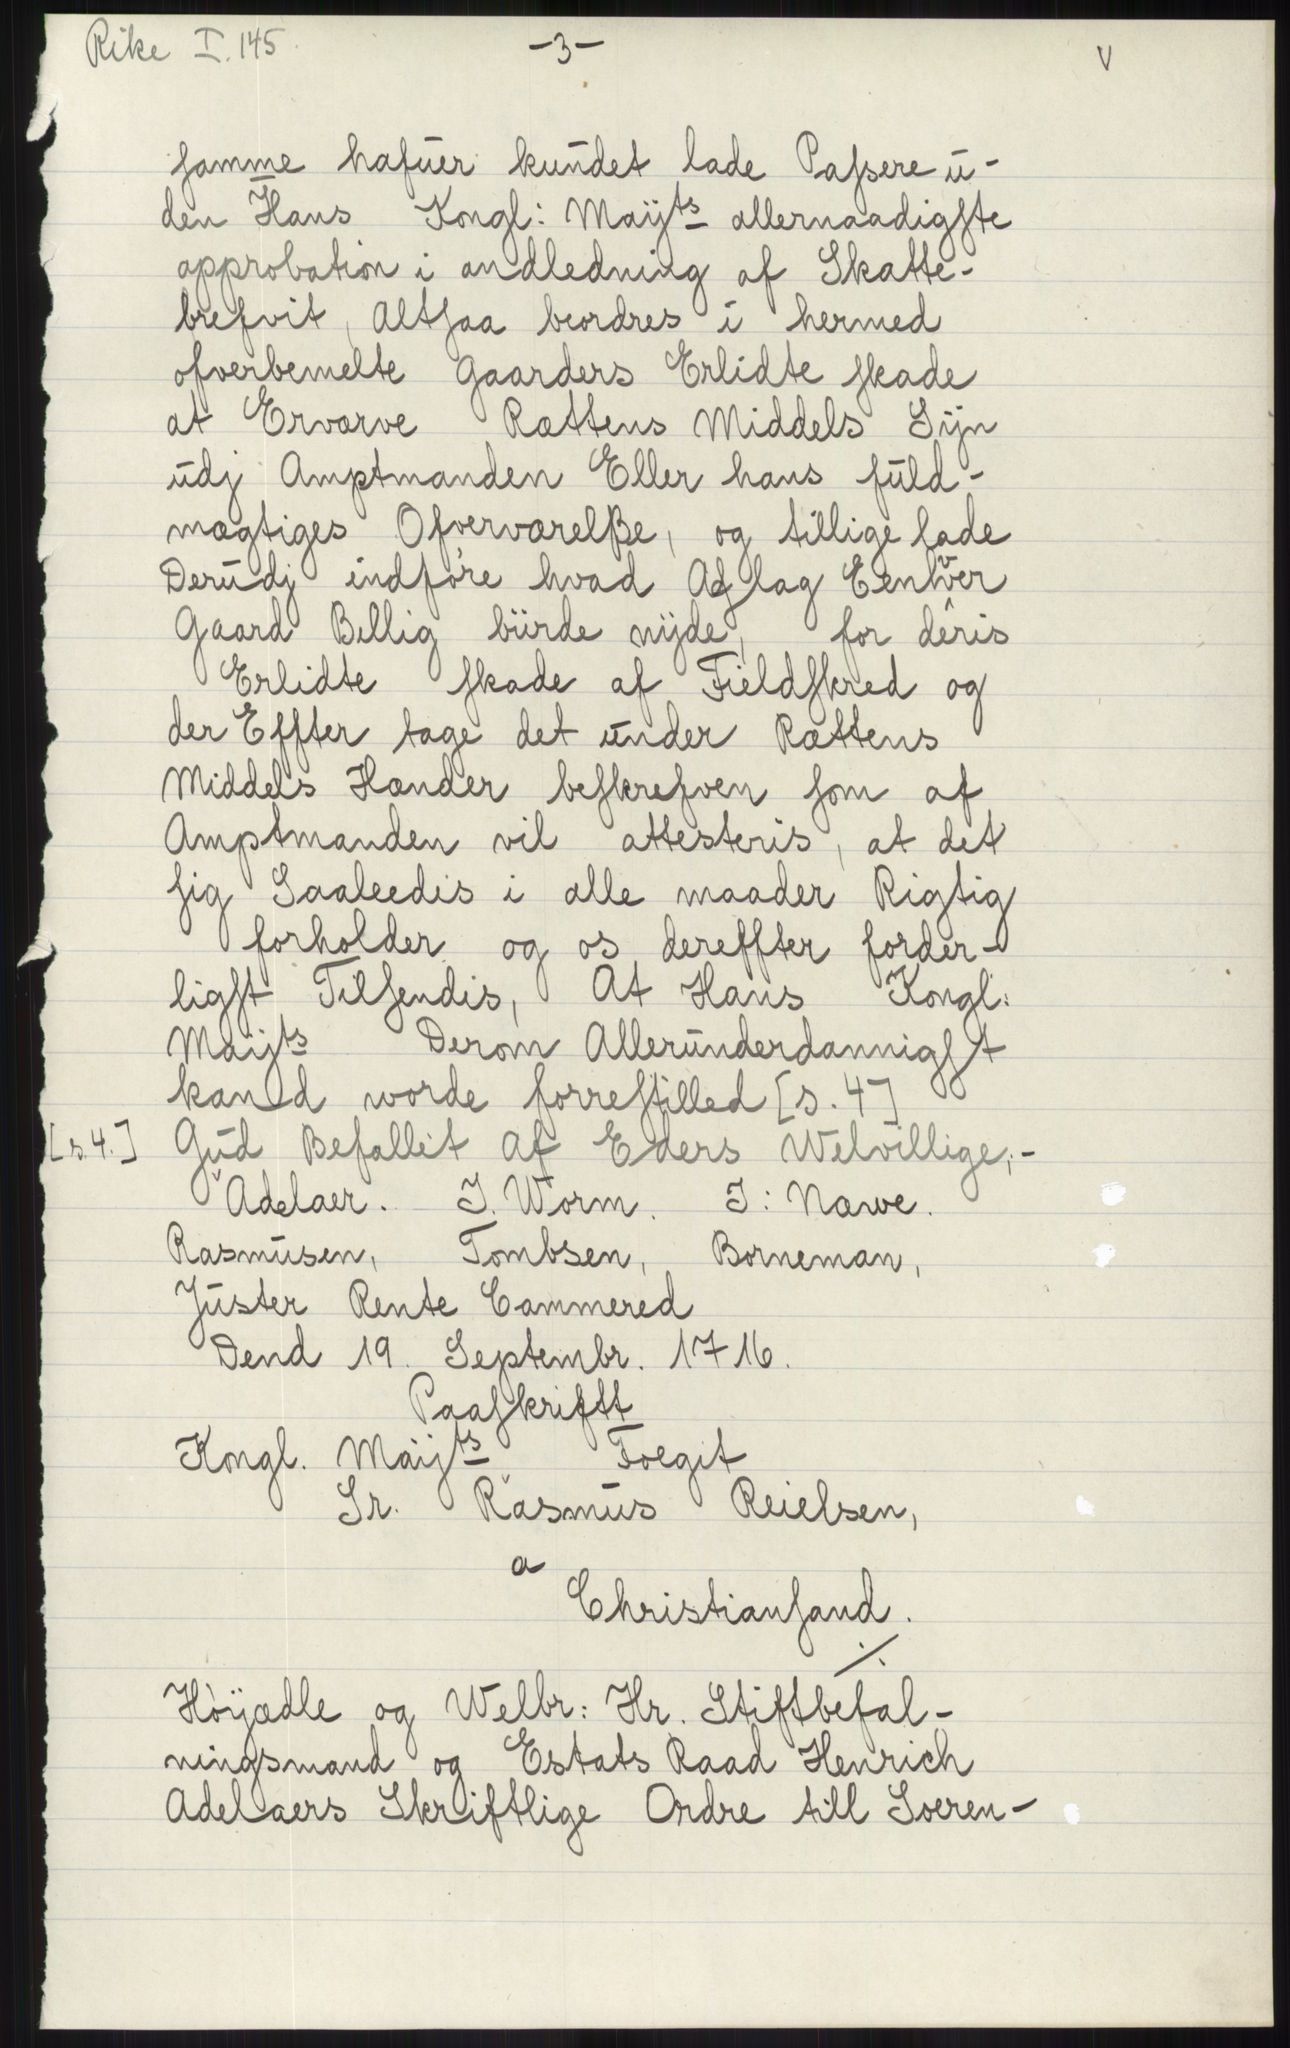 Rike I. 145. -3- V
samme hafuer kundet lade Passere u-
den Hans Kongl: Maÿts allernaadigste
approbation i andledning af Skatte-
brefvit, Altsaa beordres i hermed
ofverbemelte Gaarders Erlidte skade
at Ervarve Rættens Middels Sijn
udj Amptmanden Eller hans fuld-
mægtiges Ofverværelße, og tillige lade
Derudj indføre hvad Aflag Eenhver
Gaard Billig bürde nÿde, for deris
Erlidte skade af Fieldskred og
der Effter tage det under Rættens
Middels Hænder beskrefven som af
Amptmanden vil attesteris, at det
sig Saaleedis i alle maader Rigtig
forholder og os dereffter forder-
ligst Tilsendis, At Hans Kongl:
Maÿts Derom Allerunderdannigst
kand worde forrestilled [s. 4]
[s. 4.] Gud Befallet Af Eders Welvillige,-
Adelaer. J. Worm. J: Næwe.
Rasmusen, Tombsen, Borneman,
Juster Rente Cammered
Dend 19. Septembr. 1716.
Paaskrifft
Kongl. Maÿts Foegit
Sr. Rasmus Reielsen,
a
Christiansand.
./.
Höÿædle og Welbr: Hr. Stiftbefal-
ningsmand og Estats Raad Henrich
Adelaers Skriftlige Ordre till Soeren-